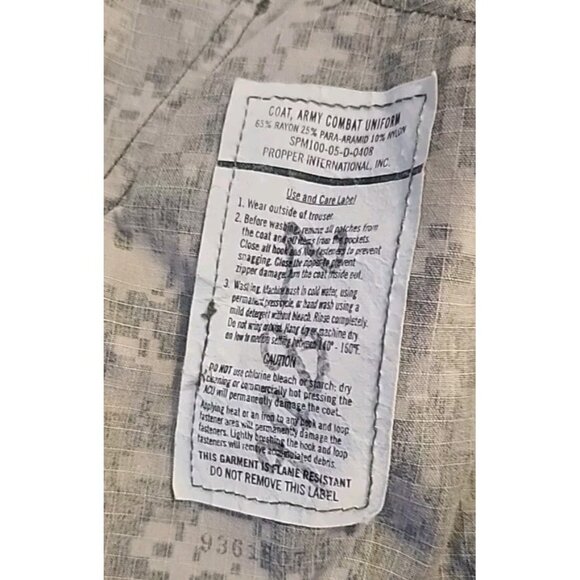 COAT, ARMY COMBAT UNIFORM
65% RAYON 25% PARA-ARAMID 10% NYLON
SPM100-05-D-0408
PROPPER INTERNATIONAL, INC.
Use and Care Label
1. Wear outside of trouser.
2. Before washing, remove all patches from
the coat and all items from the pockets.
Close all hook and loop fasteners to prevent
snagging. Close the zipper to prevent
zipper damage, turn the coat inside out.
3. Washing. Machine wash in cold water, using
permanent press cycle, or hand wash using a
mild detergent without bleach. Rinse completely.
Do not wring or twist. Hang dry or machine dry
on low to medium setting between 140° - 150°F.
CAUTION
DO NOT use chlorine bleach or starch; dry
cleaning or commercially hot pressing the
ACU will permanently damage the coat.
Applying heat or an iron to any hook and loop
fastener area will permanently damage the
fasteners. Lightly brushing the hook and loop
fasteners will remove accumulated debris.
THIS GARMENT IS FLAME RESISTANT
DO NOT REMOVE THIS LABEL